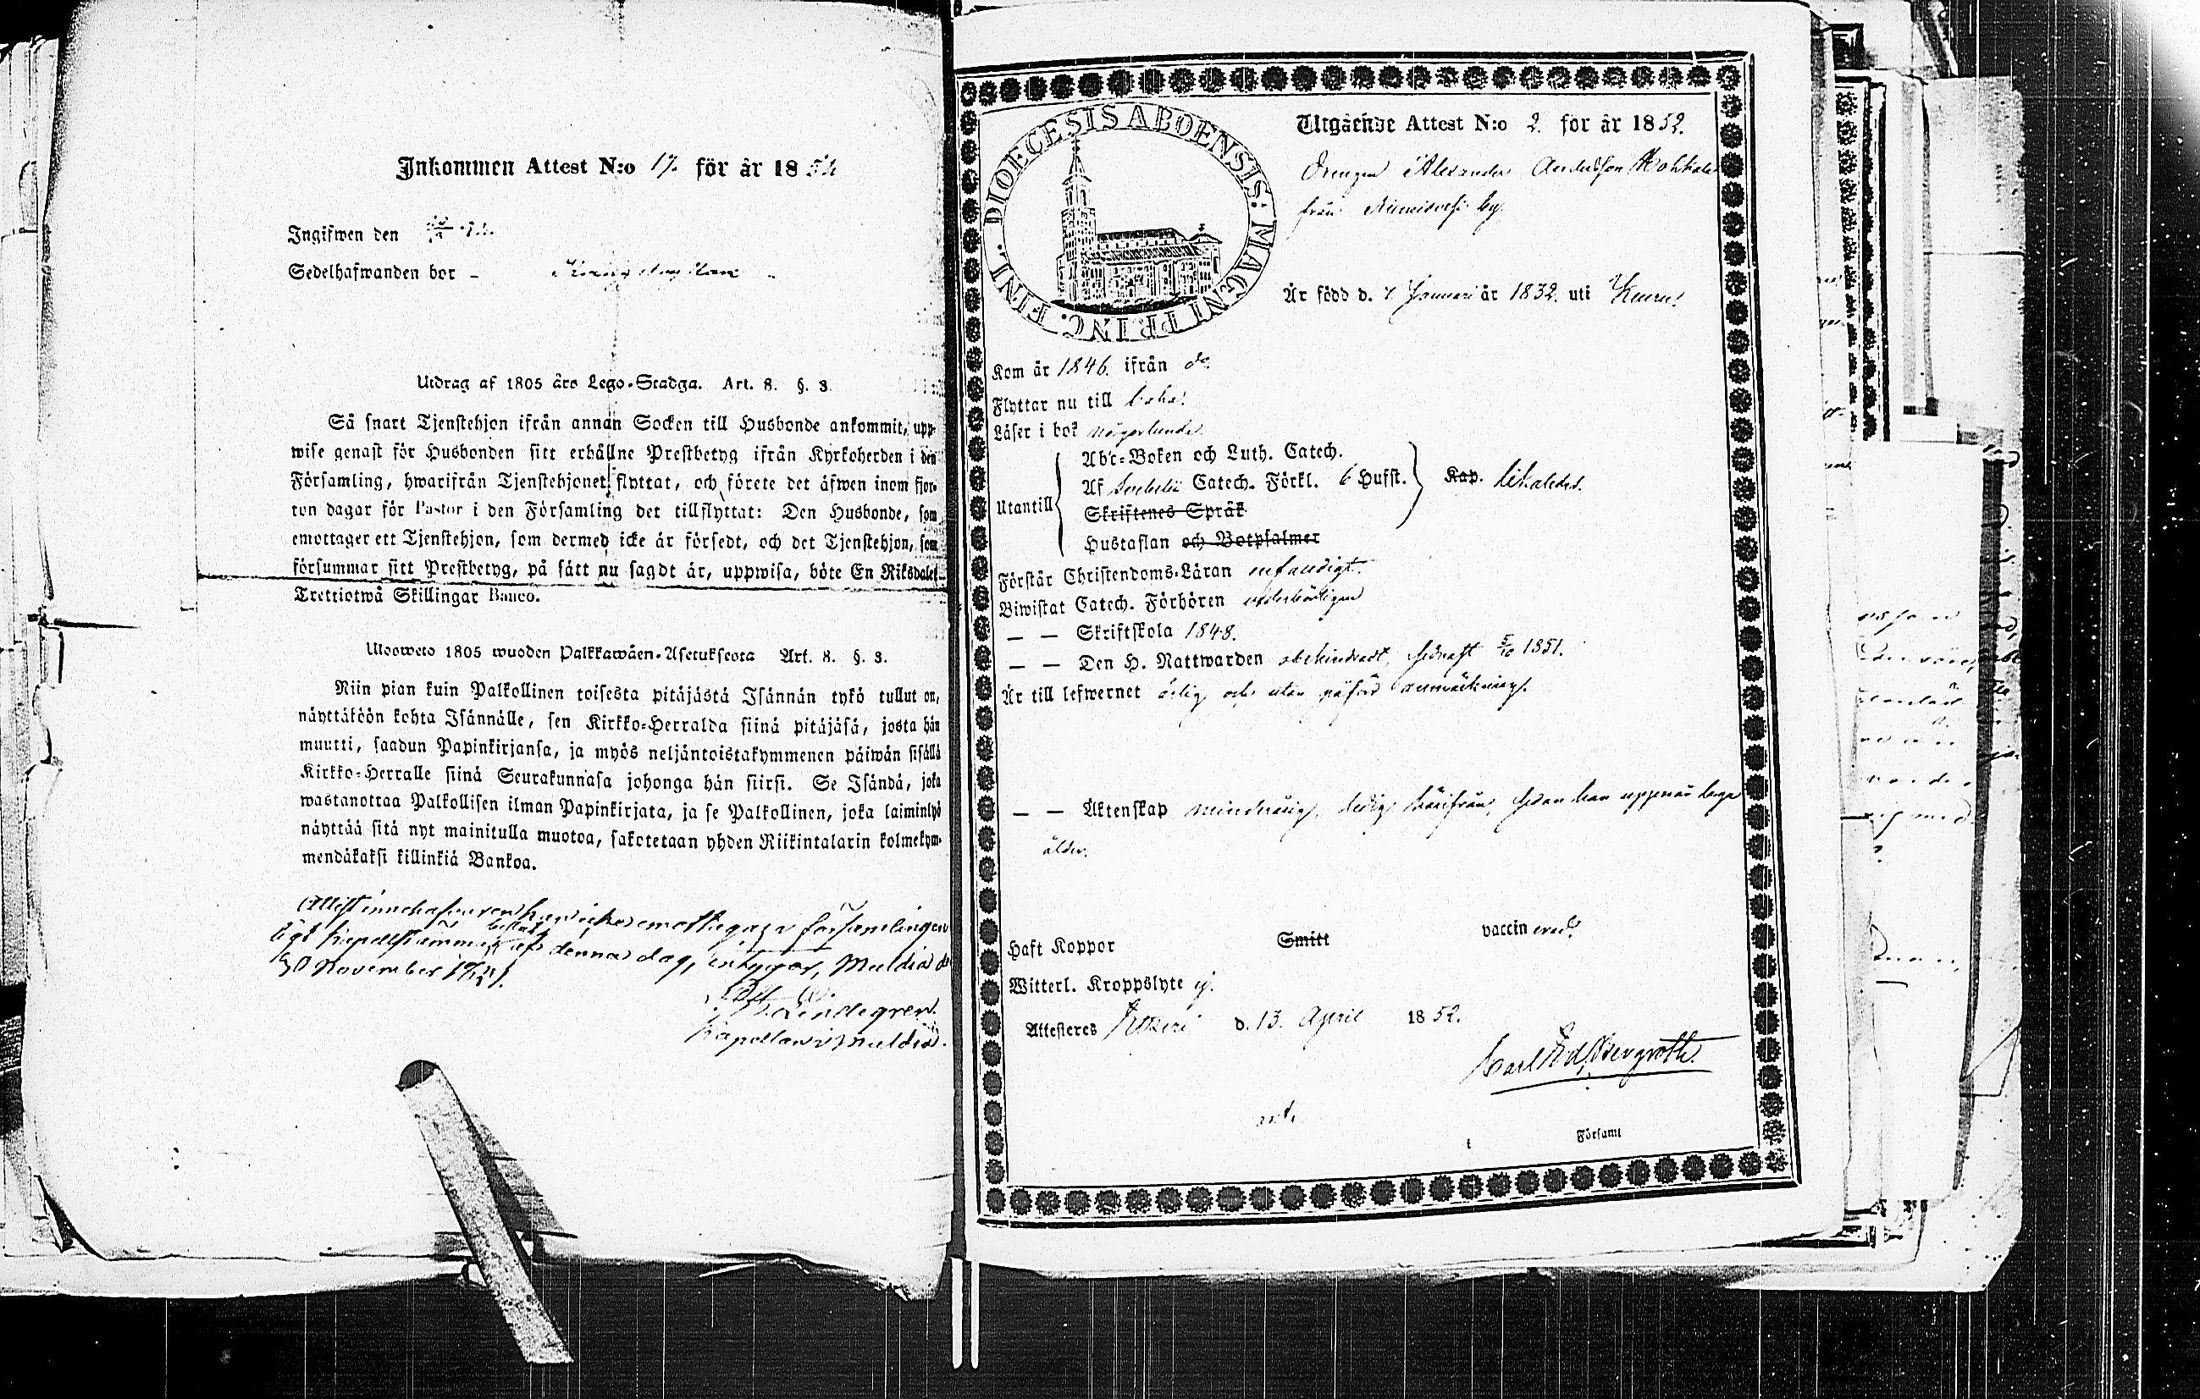 Inkommen Attest N:o 17. för år 1852
Ingifwen den
Sedelhafwanden bor –
Utdrag af 1805 års Lego-Stadga. Art. 8. §. 3.
Så snart Tjenstehjon ifrån annan Socken till Husbonde ankommit, upp-
wise genast för Husbonden sitt erhållne Prestbetyg ifrån Kyrkoherden i den
Församling, hwarifrån Tjenstehjonet flyttat, och förete det äfwen inom fjor-
ton dagar för Pastor i den Församling det tillflyttat: Den Husbonde, som
emottager ett Tjenstehjon, som dermed icke är försedt, och det Tjenstehjon, som
försummar sitt Prestbetyg, på sätt nu sagdt är, uppwisa, böte En Riksdaler
Trettiotwå Skillingar Banco.
Ulosweto 1805 wuoden Palkkawäen-Asetuksesta Art. 8. §. 3.
Niin pian kuin Palkollinen toisesta pitäjästä Isännän tykö tullut on,
näyttäköön kohta Isännälle, sen Kirkko-Herralda siinä pitäjäsä, josta hän
muutti, saadun Papinkirjansa, ja myös neljäntoistakymmenen päiwän sisällä
Kirkko-Herralle siinä Seurakunnasa johonga hän siirsi. Se Isändä, joka
wastanottaa Palkollisen ilman Papinkirjata, ja se Palkollinen, joka laiminlyö
näyttää sitä nyt mainitulla muotoa, sakotetaan yhden Riikintalarin kolmekym-
mendäkaksi killinkiä Bankoa.
Attestinnehafvaren har icke emottagas i församlingen
denna dag, intygar, Muldia d.
30 November
Lindegren.
Kapellan i Muldia.
DIOECESIS ABOENSIS: MAGNI PRINC. FINL.
Utgående Attest N:o 2. för år 1852.
Drengen Alexander Andersson
från by.
Är född d. 7 Januari år 1832. uti Keuru.
Kom år 1846. ifrån do.
Flyttar nu till
Läser i bok någorlunda.
Abc-Boken och Luth. Catech.
Af Catech. Förkl. 6 Hufst. Kap.
Utantill
Skriftenes Språk
Hustaflan och Botpsalmer
Förstår Christendoms-Läran enfaldigt.
Biwistat Catech. Förhören
– – Skriftskola 1848.
– – Den H. Nattwarden obehindradt, sednast 5/10 1851.
Är till lefwernet ärlig och utan anmärkning.
– – Äktenskap minderårig, ledig härifrån, sedan han uppnår laga
ålder.
Haft Koppor Smitt vaccinerad.
Witterl. Kroppslyte ej.
Attesteres Etseri d. 13. April 1852.
Carl Ed. Bergroth.
i Församl